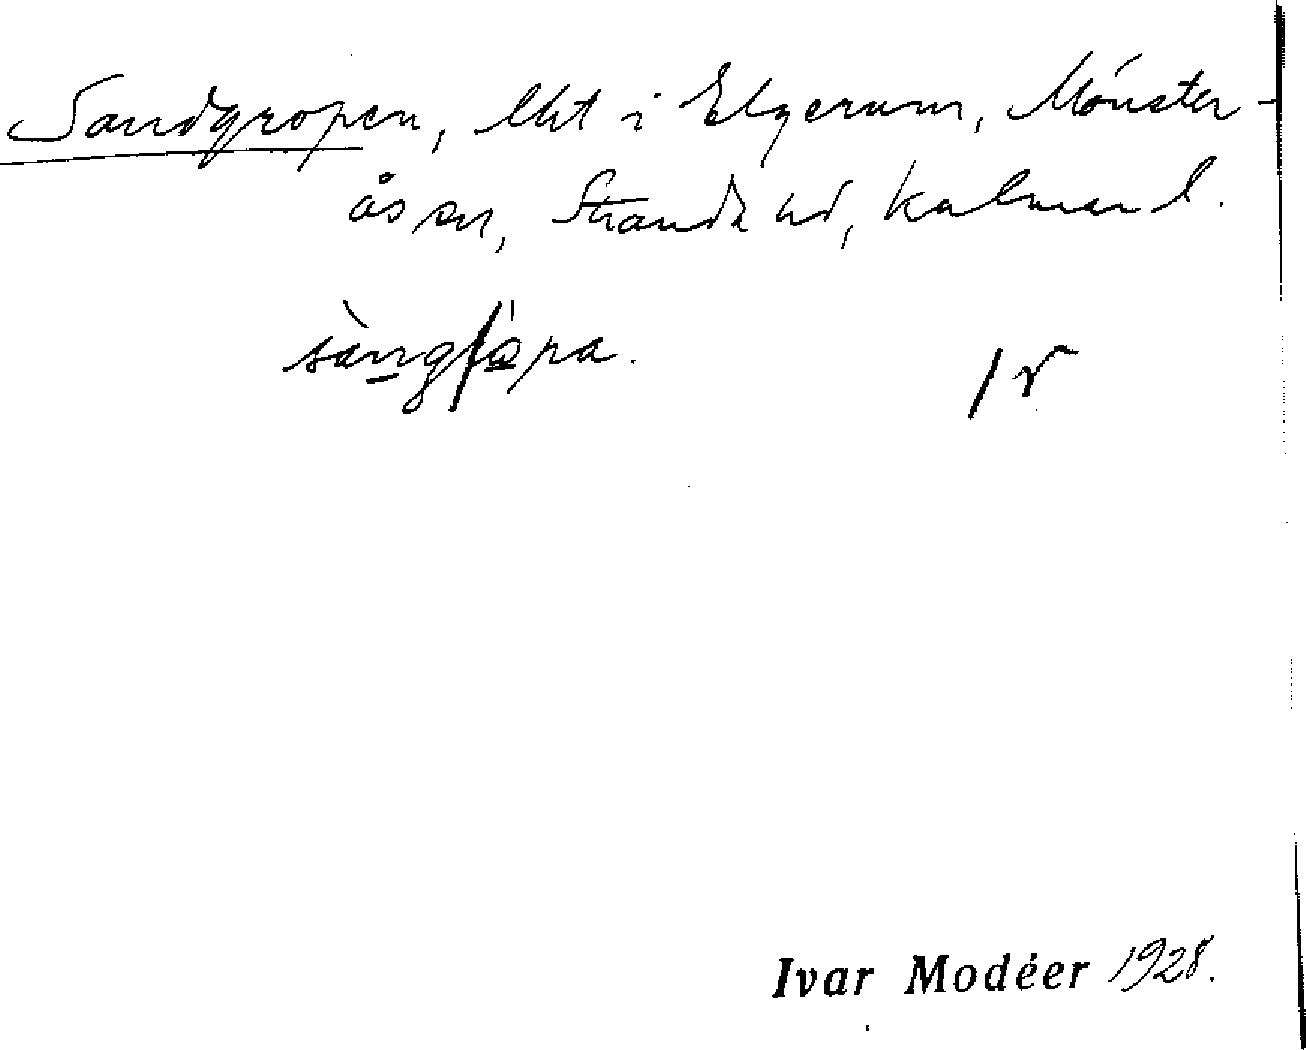 Sandgropen, lkt i Elgerum, Mönster-
ås sn, Stranda hd, Kalmar l.
sàngrópa.
/ r
Ivar Modéer 1928.